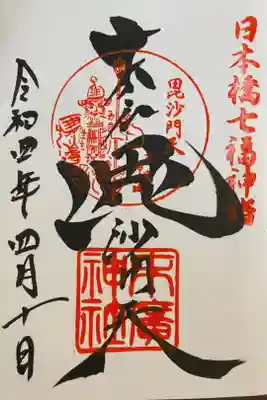 日本橋七福神詣
毘沙門天
末広
毘沙門天
末廣神社
令和四年四月十日